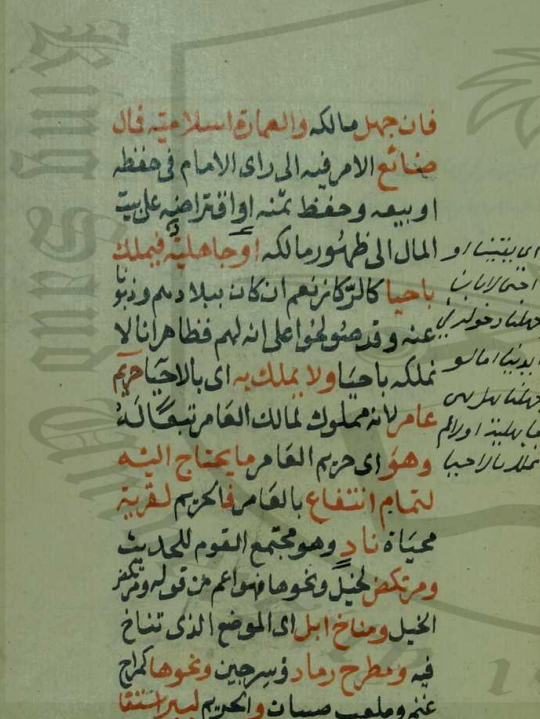 فان جهل مالكه والعمارة اسلامية فمال
ضائع الامر فيه الى راى الامام فى حفظه
او بيعه وحفظ ثمنه او اقتراضه على بيت
المال الى ظهور مالكه او جاهلية فيملك
باحيا كالركاز نعم ان كان ببلادهم وذبونا
عنه وقد صولحوا على انه لهم فظاهر انا لا
نملكه باحيا ولا يملك به اى بالاحيا حريم
عامر لانه مملوك لمالك العامر تبعا له
وهو اى حريم العامر ما يحتاج اليه
لتمام انتفاع بالعامر فالحريم لقرية
محياة ناد وهو مجتمع القوم للحديث
ومرتكض لخيل ونحوها فهو اعم من قوله ومرتكض
الخيل ومناخ ابل اى الموضع الذى تناخ
فيه ومطرح رماد وسرجين ونحوها كمراح
غنم وملعب صبيان والحريم لبير استقا
King Saud